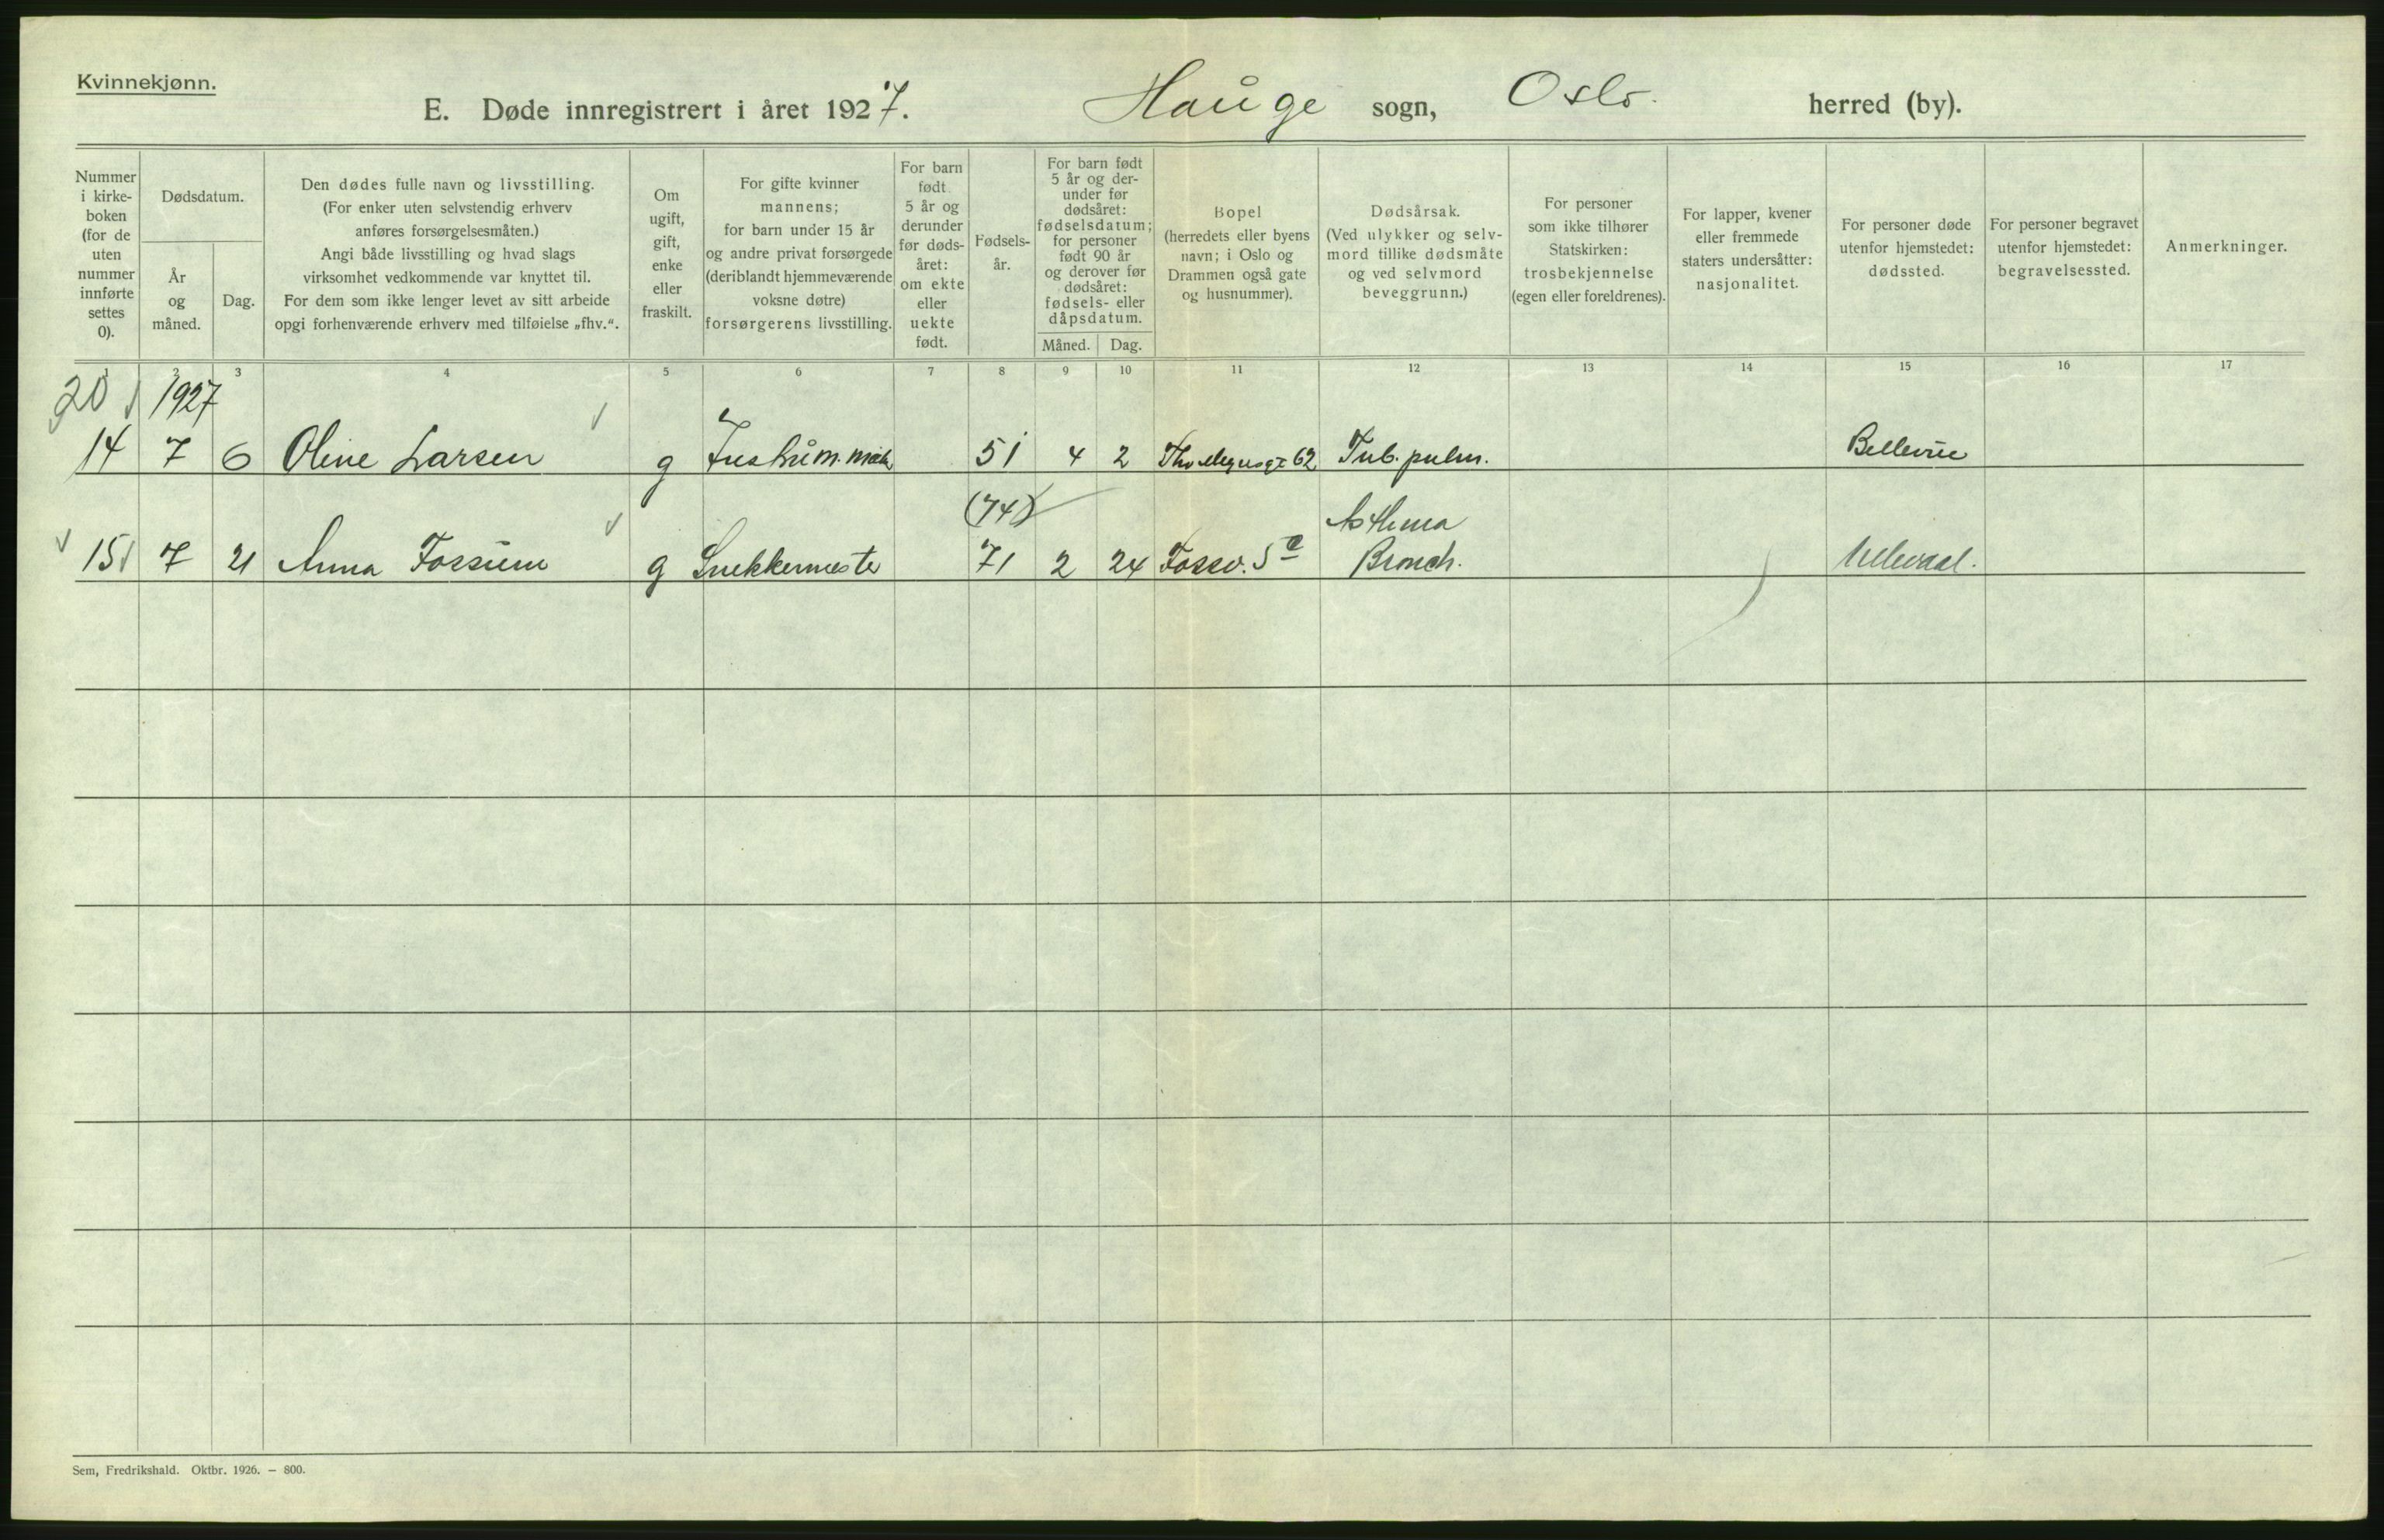 Kvinnekjønn.
E. Døde innregistrert i året 1927. Hauge sogn, Oslo. herred (by).
Nummer i kirke- boken (for de uten nummer innførte settes 0).
Dødsdatum.
År og måned.
Dag.
Den dødes fulle navn og livsstilling.
(For enker uten selvstendig erhverv
anføres forsørgelsesmåten.)
Angi både livsstilling og hvad slags
virksomhet vedkommende var knyttet til.
For dem som ikke lenger levet av sitt arbeide
opgi forhenværende erhverv med tilføielse „fhv.“.
Om
ugift,
gift,
enke
eller
fraskilt.
For gifte kvinner
mannens;
for barn under 15 år
og andre privat forsørgede
(deriblandt hjemmeværende
voksne døtre)
forsørgerens livsstilling.
For barn
født
5 år og
derunder
før døds-
året:
om ekte
eller
uekte
født.
Fødsels-
år.
For barn født
5 år og der-
under før
dødsåret:
fødselsdatum;
for personer
født 90 år
og derover før
dødsåret:
fødsels- eller
dåpsdatum.
Måned. Dag.
Bopel
(herredets eller byens
navn; i Oslo og
Drammen også gate
og husnummer).
Dødsårsak.
(Ved ulykker og selv-
mord tillike dødsmåte
og ved selvmord
beveggrunn.)
For personer
som ikke tilhører
Statskirken:
trosbekjennelse
(egen eller foreldrenes).
For lapper, kvener
eller fremmede
staters undersåtter:
nasjonalitet.
For personer døde
utenfor hjemstedet:
dødssted.
For personer begravet
utenfor hjemstedet:
begravelsessted.
Anmerkninger.
1 2 3 4 5 6 7 8 9 10 11 12 13 14 15 16 17
20 1927
14 7 6 Oline Larsen g 51 4 2 62 Tub. pulm. Bellevue
(74)
Asthma
15 7 21 Anna Fossum g Snekkermester 71 2 24 Fossv. 5 Bronch. Ullevaal.
Sem, Fredrikshald. Oktbr. 1926. — 800.